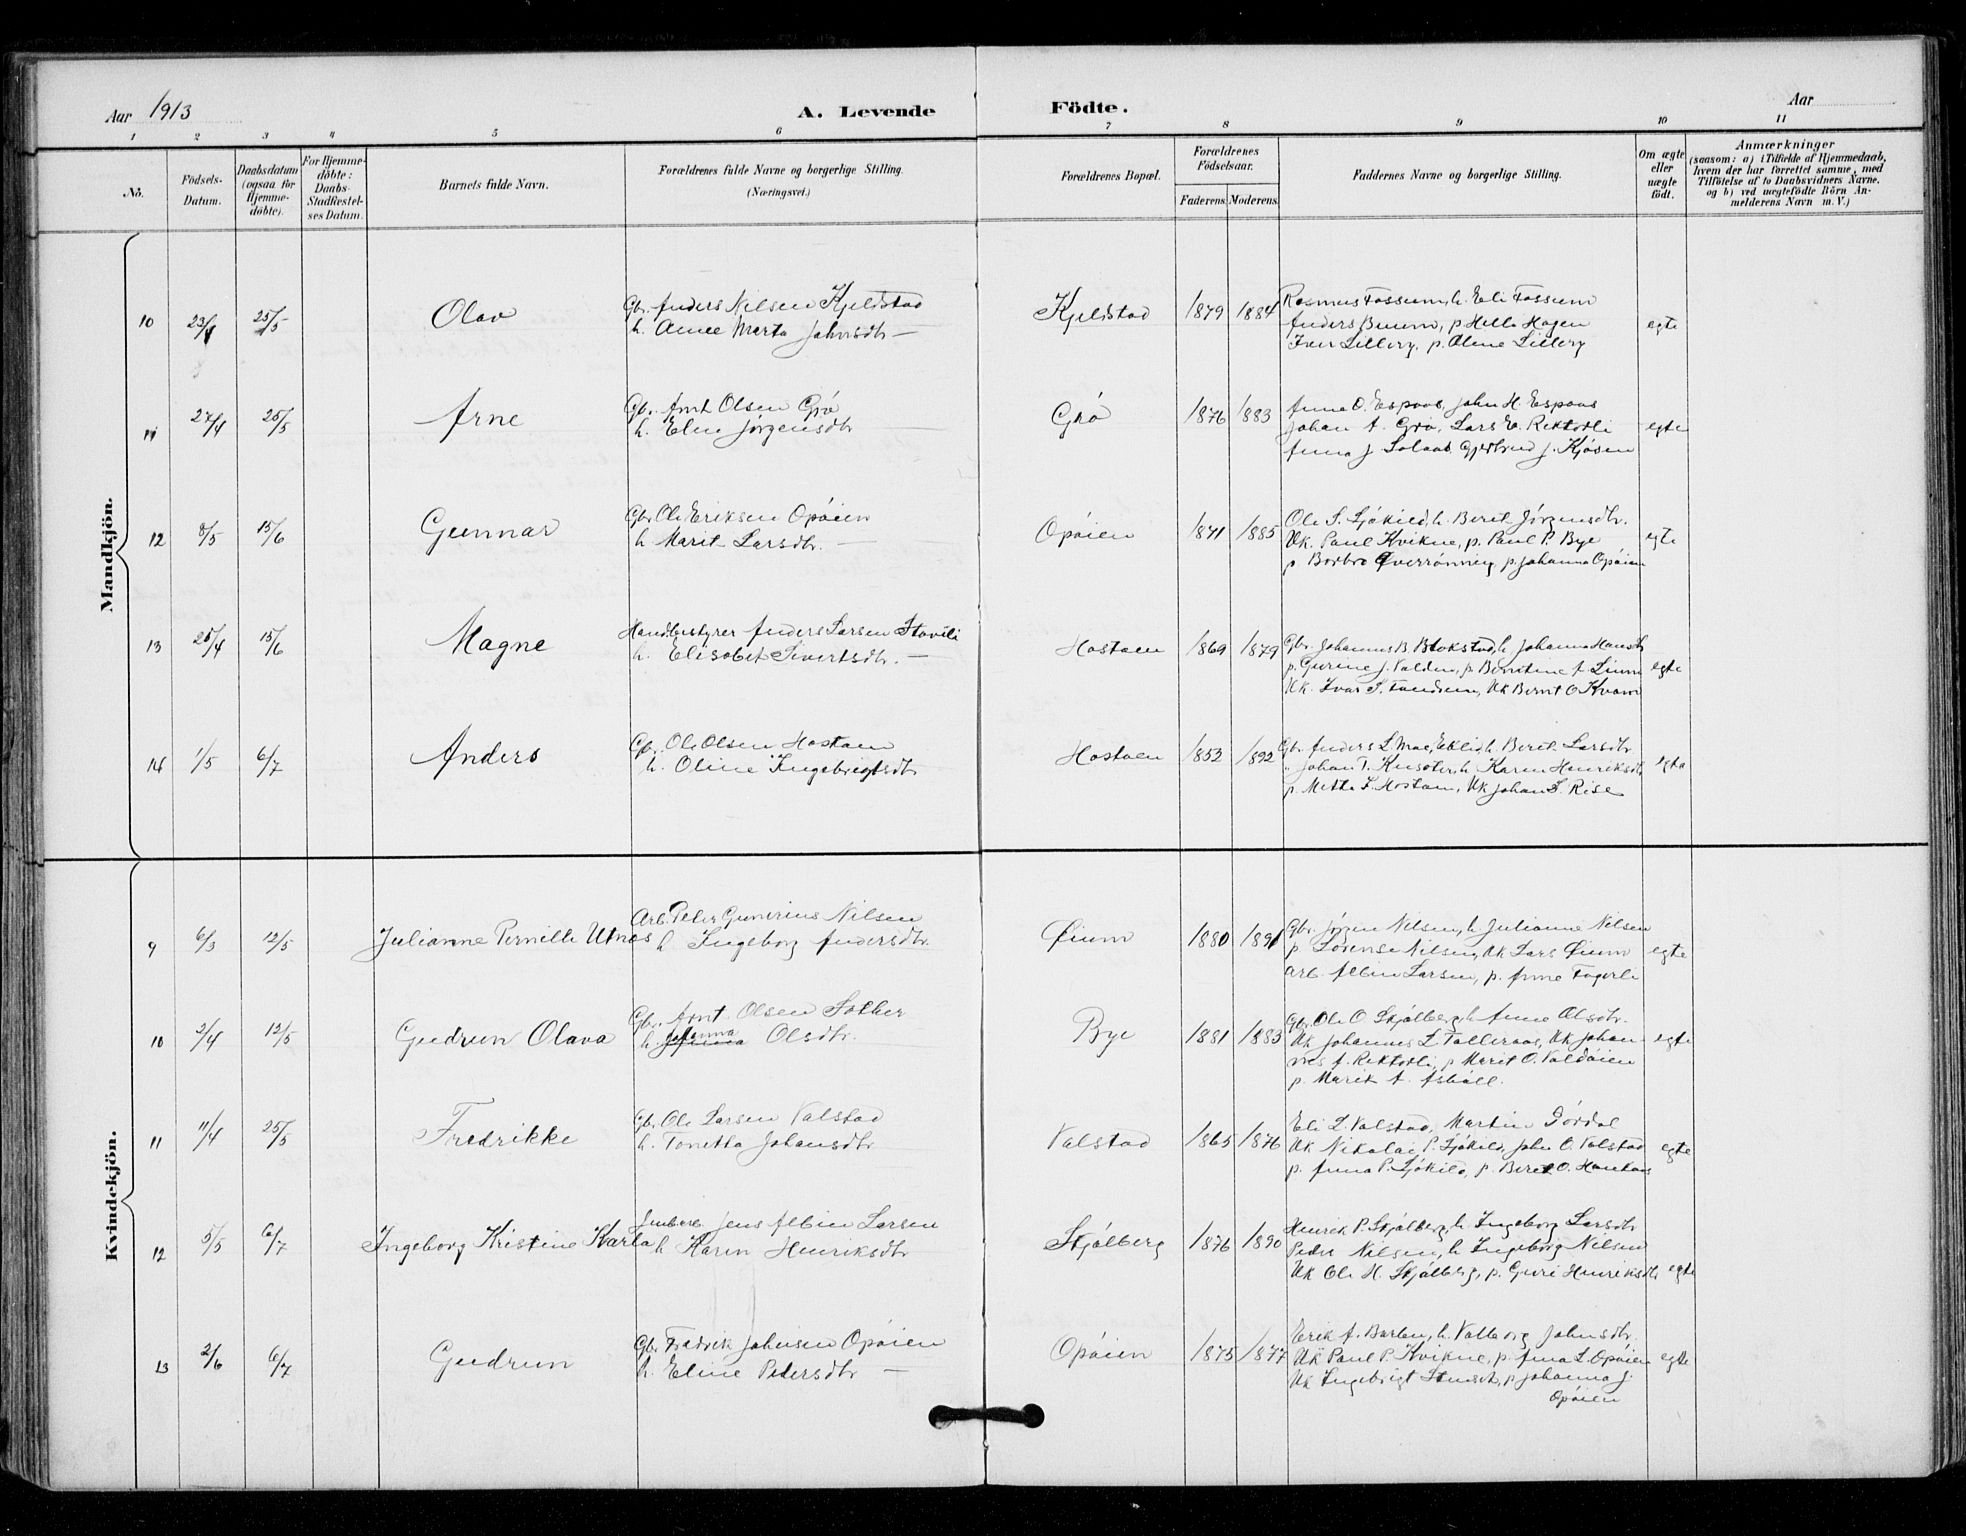 Aar 1913
A. Levende
Födte.
Aar
1 2 3 4 5 6 7 8 9 10 11
No.
Födsels-
Datum.
Daabsdatum
(ogsaa for
Hjemme-
döbte).
For Hjemme-
döbte:
Daabs-
Stadfæstel-
ses Datum.
Barnets fulde Navn.
Forældrenes fulde Navne og borgerlige Stilling.
(Næringsvei.)
Forældrenes Bopæl.
Forældrenes
Födselsaar.
Faderens. Moderens.
Faddernes Navne og borgerlige Stilling.
Om ægte
eller
uægte
födt.
Anmærkninger
(saasom: a) i Tilfælde af Hjemmedaab,
hvem der har forrettet samme, med
Tilföielse af to Daabsvidners Navne.
og b) ved uægtefödte Börn An-
melderens Navn m. V.)
Mandkjön.
10 23/4 25/5 Olav
Gbr. Anders Nilsen Kjeldstad
h. Anne Marta Johnsdtr —
Kjeldstad 1879 1884
Rasmus Fossum, h. Eli Fossum
Anders Buum, p. Helle Hagen
Iver Lillery, p. Oline Lillery
egte
11 27/4 25/5 Arne
Gbr. Arnt Olsen Grö
h. Eline Jörgensdtr
Grö 1876 1883
Anne O. Espaas, John H. Espaas
Johan A. Grö, Lars E. Rektorli
Anna J. Solaas Gjertrud J. Kjösen
egte
12 8/5 15/6 Gunnar
Gbr. Ole Eriksen Opöien
h. Marit Larsdtr. —
Opöien 1871 1885
Ole S. Sjökild, h. Berit Jörgensdtr.
Uk. Paul Kvikne, p. Paul P. Bye
p. Borbro Överrönning, p. Johanna Opöien
egte
13 25/4 15/6 Magne
Handbestyrer Anders Larsen Stavili
h. Elisabet Sivertsdtr. —
Hostoen 1869 1879
Gbr. Johannes B. Blokstad, h. Johanna Hansdtr
p. Gurine J. Valden, p. Berntine A. Lium
Uk. Ivar S. Tendsen, Uk Bernt O Kvam
egte
14 1/5 6/7 Anders
Gbr. Ole Olsen Hostoen
h. Oline Ingebrigtsdtr
Hostoen 1853 1892
Gbr. Anders L Moe, Eklid, h. Berit Larsdtr
" Johan T. Kusoter, h. Karen Henriksdtr
p. Mette S. Hostoen, Uk Johan S. Rise
egte
Kvindekjön.
9 6/3 12/5 Julianne Pernille Utnes
Arb. Peter Gunerius Nilsen
h. Ingeborg Andersdtr.
Öium 1880 1891
Gbr. Jörgen Nilsen, h. Julianne Nilsen
p Lorense Nilsen, Uk Lars Öium
arb. Albin Larsen, p. Anne Fagerli
egte
10 2/4 12/5 Gudrun Olava
Gbr. Arnt Olsen Sother
h. Johanna Olsdtr.
Bye 1881 1883
Gbr. Ole O. Skjölberg, h. Anne Olsdtr.
Uk Johannes L Tolleraas, Uk Johan-
nes A. Rektorli, p Marit O. Valdöien
p. Marik A. Asböll.
egte
11 11/4 25/5 Fredrikke
Gbr. Ole Larsen Valstad
h. Tonetta Johansdtr
Valstad 1865 1876
Eli L. Valstad, Martin Gördal
Uk Nikolai P. Sjökild, John O. Valstad
p. Anna P. Sjökild, p. Beret O. Haukaas
egte
12 5/5 6/7 Ingeborg Kristine Karla
Jernb.arb. Jens Albin Larsen
h Karen Henriksdtr
Skjölberg 1876 1890
Henrik P. Skjölberg, h. Ingeborg Larsdtr
Peder Nilsen, h. Ingeborg Nilsen
Uk Ole H. Skjölberg, p. Guri Henriksdtr
egte
13 2/6 6/7 Gudrun
Gbr. Fredrik Johnsen Opöien
h. Eline Pedersdtr —
Opöien 1875 1877
Erik A. Barlen, h. Valborg Johnsdtr.
Uk Paul P. Kvikne, p. Anna L. Opöien
Uk Ingebrigt Stensch, p Johanna J.
Opöien
egte